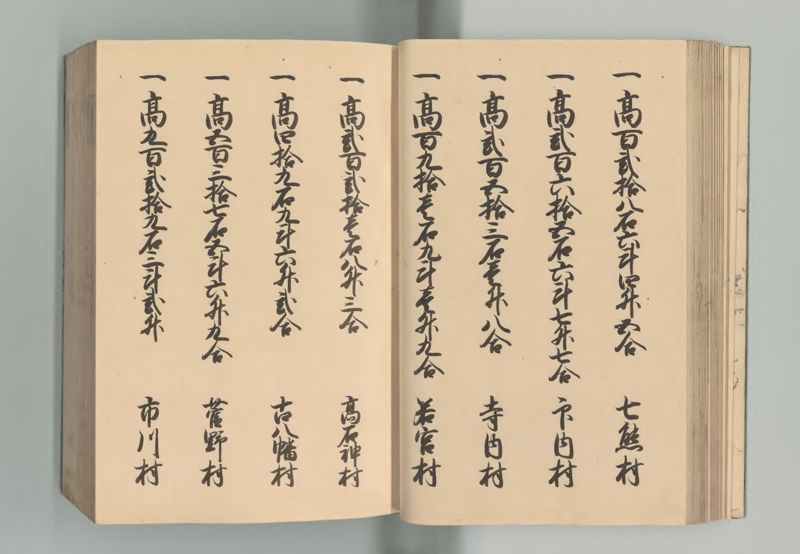 一 高百弐拾八石六斗四升五合 七熊村
一 高弐百六拾五石六斗七升七合 印内村
一 高弐百五拾三石壱升八合 寺内村
一 高百九拾壱石九斗壱升九合 若宮村
一 高弐百弐拾壱石八升三合 高石神村
一 高四拾九石九斗六升弐合 古八幡村
一 高五百三拾七石五斗六升九合 菅野村
一 高九百弐拾九石三斗弐升 市川村